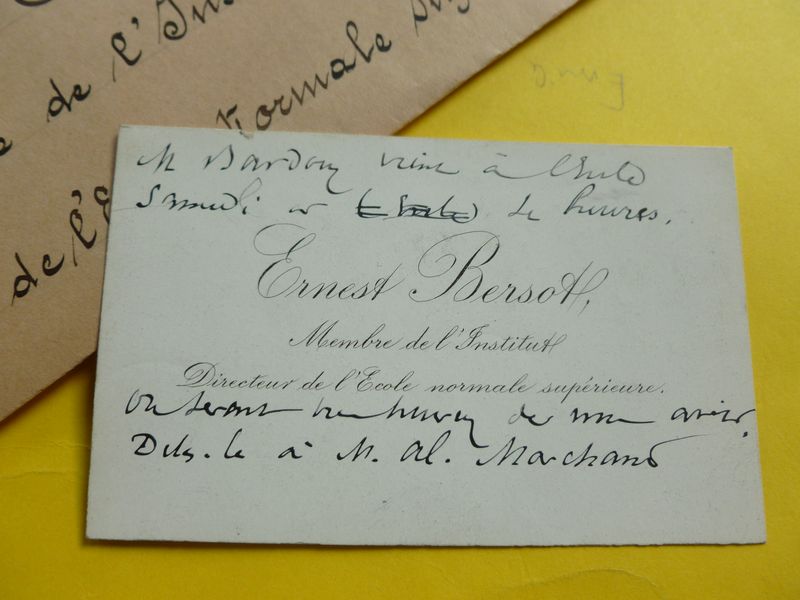 de l'Ins
Normale Su
de l'
M Bardoux vient à l'Ecole
Samedi à heures.
Ernest Bersot,
Membre de l'Institut
Directeur de l'Ecole normale supérieure.
On serait bien heureux de vous avoir.
Dites-le à M. Al. Marchand